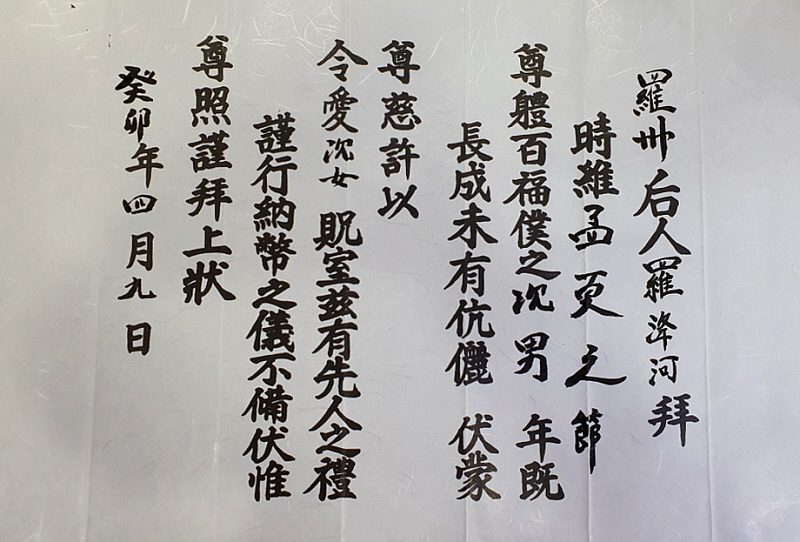 羅州后人羅洚河 拜
時維孟夏之節
尊體百福僕之次男 年既
長成未有伉儷 伏蒙
尊慈許以
令愛次女 貺室玆有先人之禮
謹行納幣之儀不備伏惟
尊照謹拜上狀
癸卯年四月九日